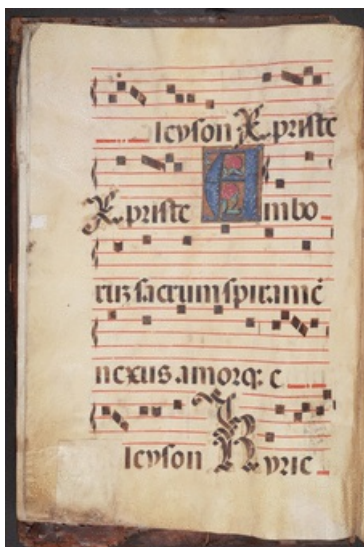 leyson Xpriste
Xpriste Ambo
rum sacrum spiramē
nexus amorq; e
leyson Kyrie